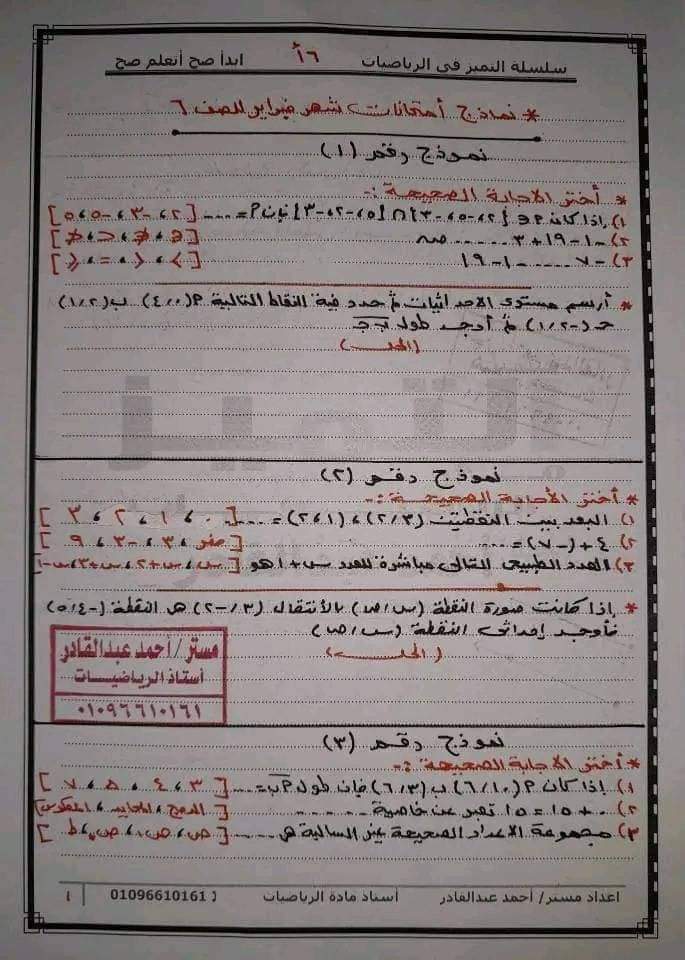 سلسلة التميز فى الرياضيات ٦أ ابدأ صح أتعلم صح
* نماذج أمتحانات شهر فبراير للصف ٦
نموذج رقم (١)
* أختر الاجابة الصحيحة :-
١) إذا كان P∋ {٢، -٥، -٣} ∩ {٥، -٢، -٣} فإن P = .... [٢، -٣، -٥، ٥]
٢) -١ - ١٩ + ٣ ...... صہ [∋، ∌، ⊂، ⊄]
٣) -٧ ..... -١ - ١٩ [>، <، =، ≤]
* أرسم مستوى الاحداثيات ثم حدد فية النقاط التالية P (٠، ٤) ب (٢، ١)
حـ (-٢، ١) ثم أوجد طول ب جـ
(الحل)
نموذج رقم (٢)
* أختر الأجابة الصحيحة :-
١) البعد بين النقطتين (٣، ٢)، (١، ٢) = .... [٠، ١، ٢، ٣]
٢) ٤ + (-٧) = ...... [صفر، ٣، -٣، ٩]
٣) العدد الطبيعى التالى مباشرة للعدد س + ١ هو [س، س+٢، س+٣، س-١]
* إذا كانت صورة النقطة (س، ص) بالأنتقال (٣، -٢) هى النقطة (-٤، ٥)
فأوجد إحداثى النقطة (س، ص)
(الحل)
مستر/أحمد عبدالقادر
أستاذ الرياضيات
٠١٠٩٦٦١٠١٦١
نموذج رقم (٣)
* أختر الاجابة الصحيحة :-
١) إذا كان P (١٠، ٦) ب (٣، ٦) فإن طول P ب = .... [٣، ٤، ٥، ٧]
٢) ٠ + ١٥ = ١٥ تعبر عن خاصية ...... [الدمج، المحايد، المعكوس]
٣) مجموعة الاعداد الصحيحة غير السالبة هى .... [ص، ص، ص، ط]
اعداد مستر/ أحمد عبدالقادر أستاذ مادة الرياضيات ت 01096610161 ١